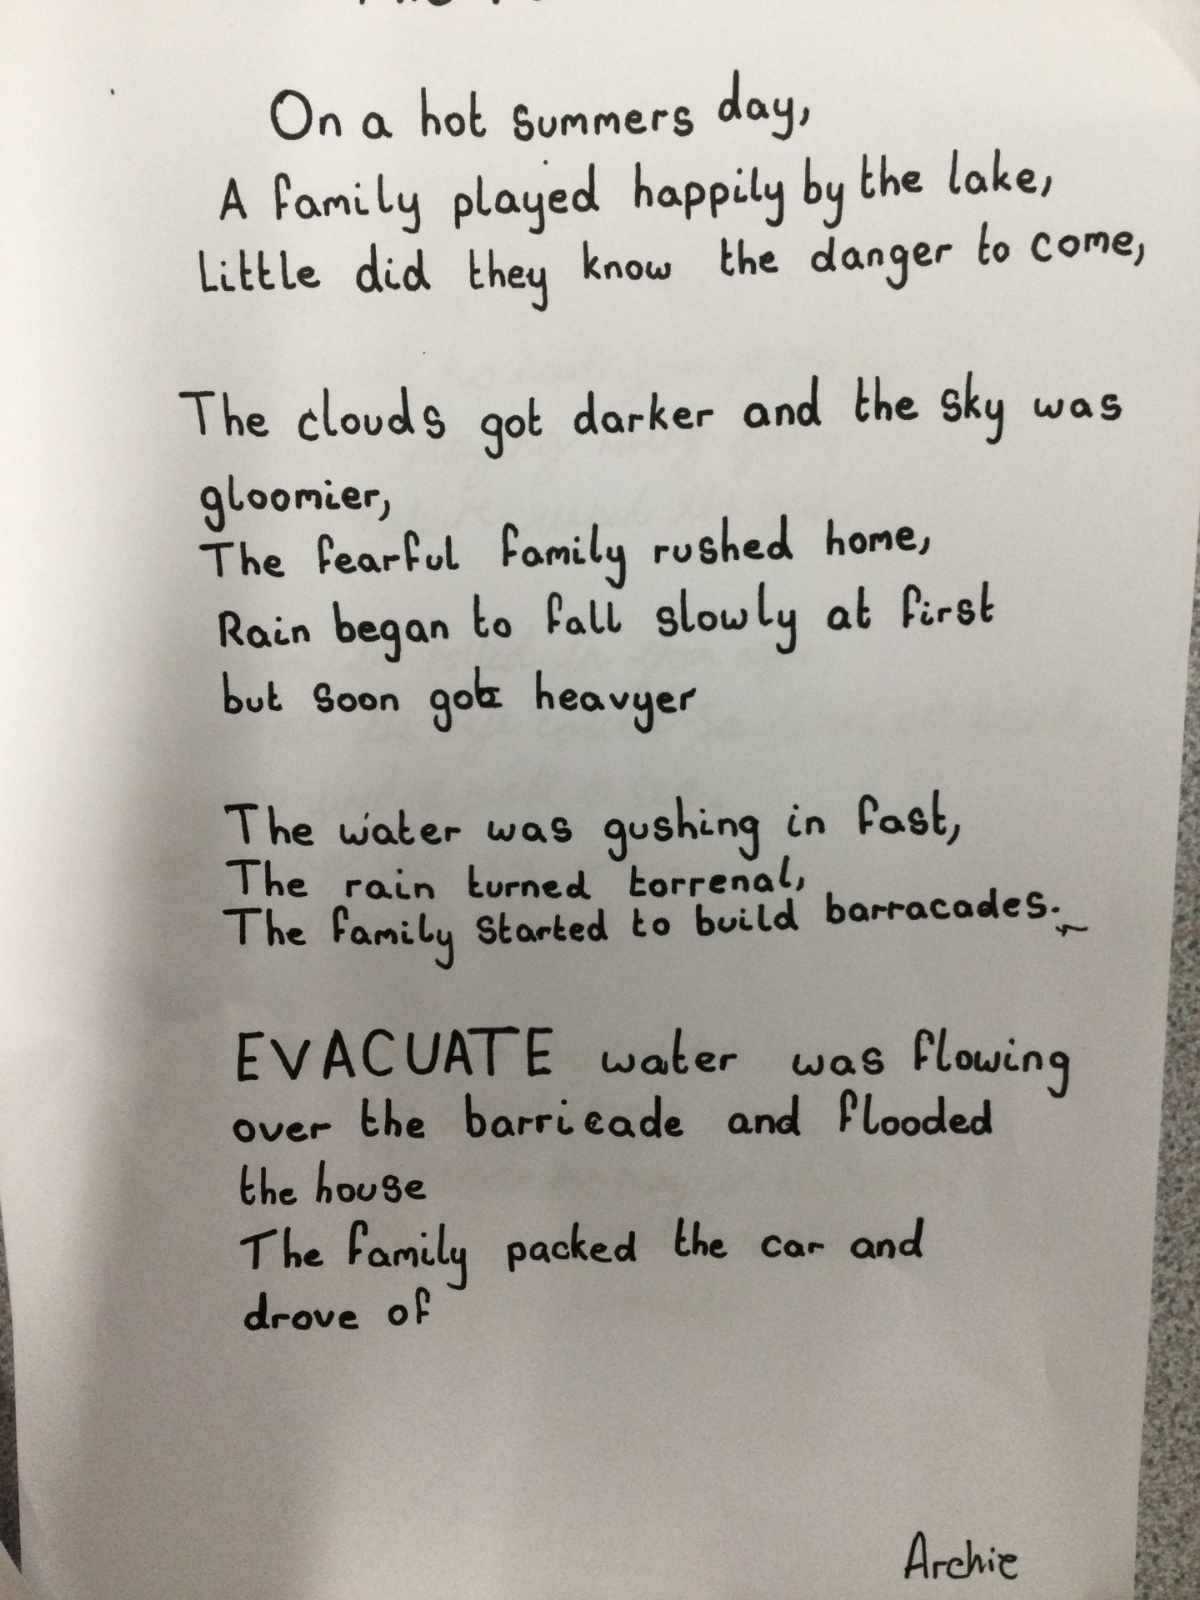 On a hot summers day,
A family played happily by the lake,
Little did they know the danger to come,
The clouds got darker and the sky was
gloomier,
The fearful family rushed home,
Rain began to fall slowly at first
but soon got heavyer
The water was gushing in fast,
The rain turned torrenal,
The family started to build barracades.
EVACUATE water was flowing
over the barricade and flooded
the house
The family packed the car and
drove of
Archie